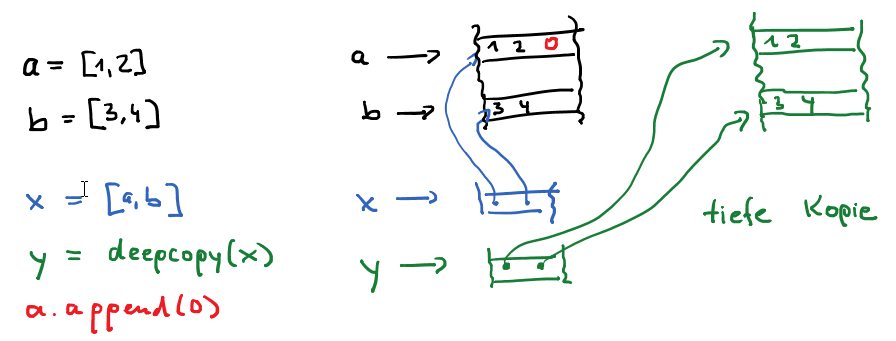 a = [1,2]
b = [3,4]
x = [a,b]
y = deepcopy(x)
a.append(0)
a → 1 2 0
b → 3 4
x →
y →
1 2
3 4
tiefe Kopie